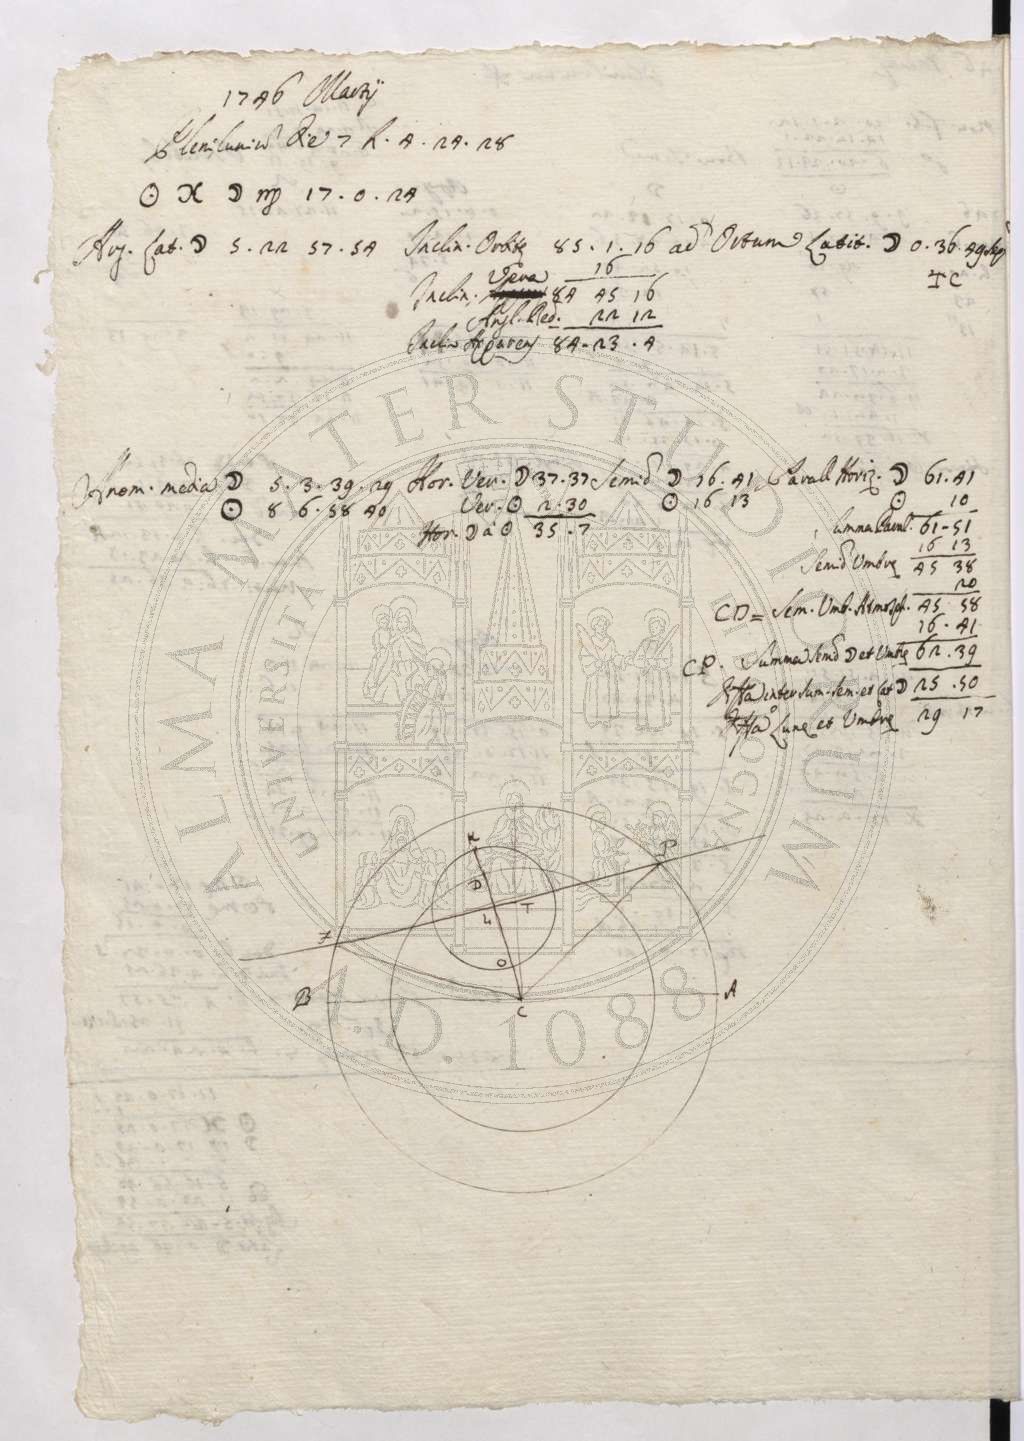 1746 Martij
Plenilunium Die 7 h. 4. 24. 28
☉ ♓ ☽ ♍ 17. 0. 24
Arg. Lat. ☽ 5. 22 57. 54 Inclin. Orbitę 85. 1. 16 ad Ortum Latit. ☽ 0. 36. 49
16
IC
Inclin. Vera 84 45 16
Angl. Red. 22 12
Inclin Apparens 84. 23. 4
Anom. media ☽ 5. 3. 39. 29 Hor. Ver. ☽ 37. 37 Semid ☽ 16. 41 Parall Horiz. ☽ 61. 41
☉ 8 6. 58 40 Ver. ☉ 2. 30 ☉ 16 13 ☉ 10
Hor. ☽ a ☉ 35. 7 Summa Parall. 61-51
16 13
Semid Umbrę 45 38
20
CD = Sem. Umb. Atmosph. 45 58
16. 41
CP. Summa Semid ☽ et Umbrę 62. 39
Dffa inter sum. sem. et Lat ☽ 25. 50
Dffa Lunę et Umbrę 29 17
K
P
D
T
L
F
O
B
C
A
ALMA MATER STUDIORUM
UNIVERSITA DI BOLOGNA
A.D. 1088